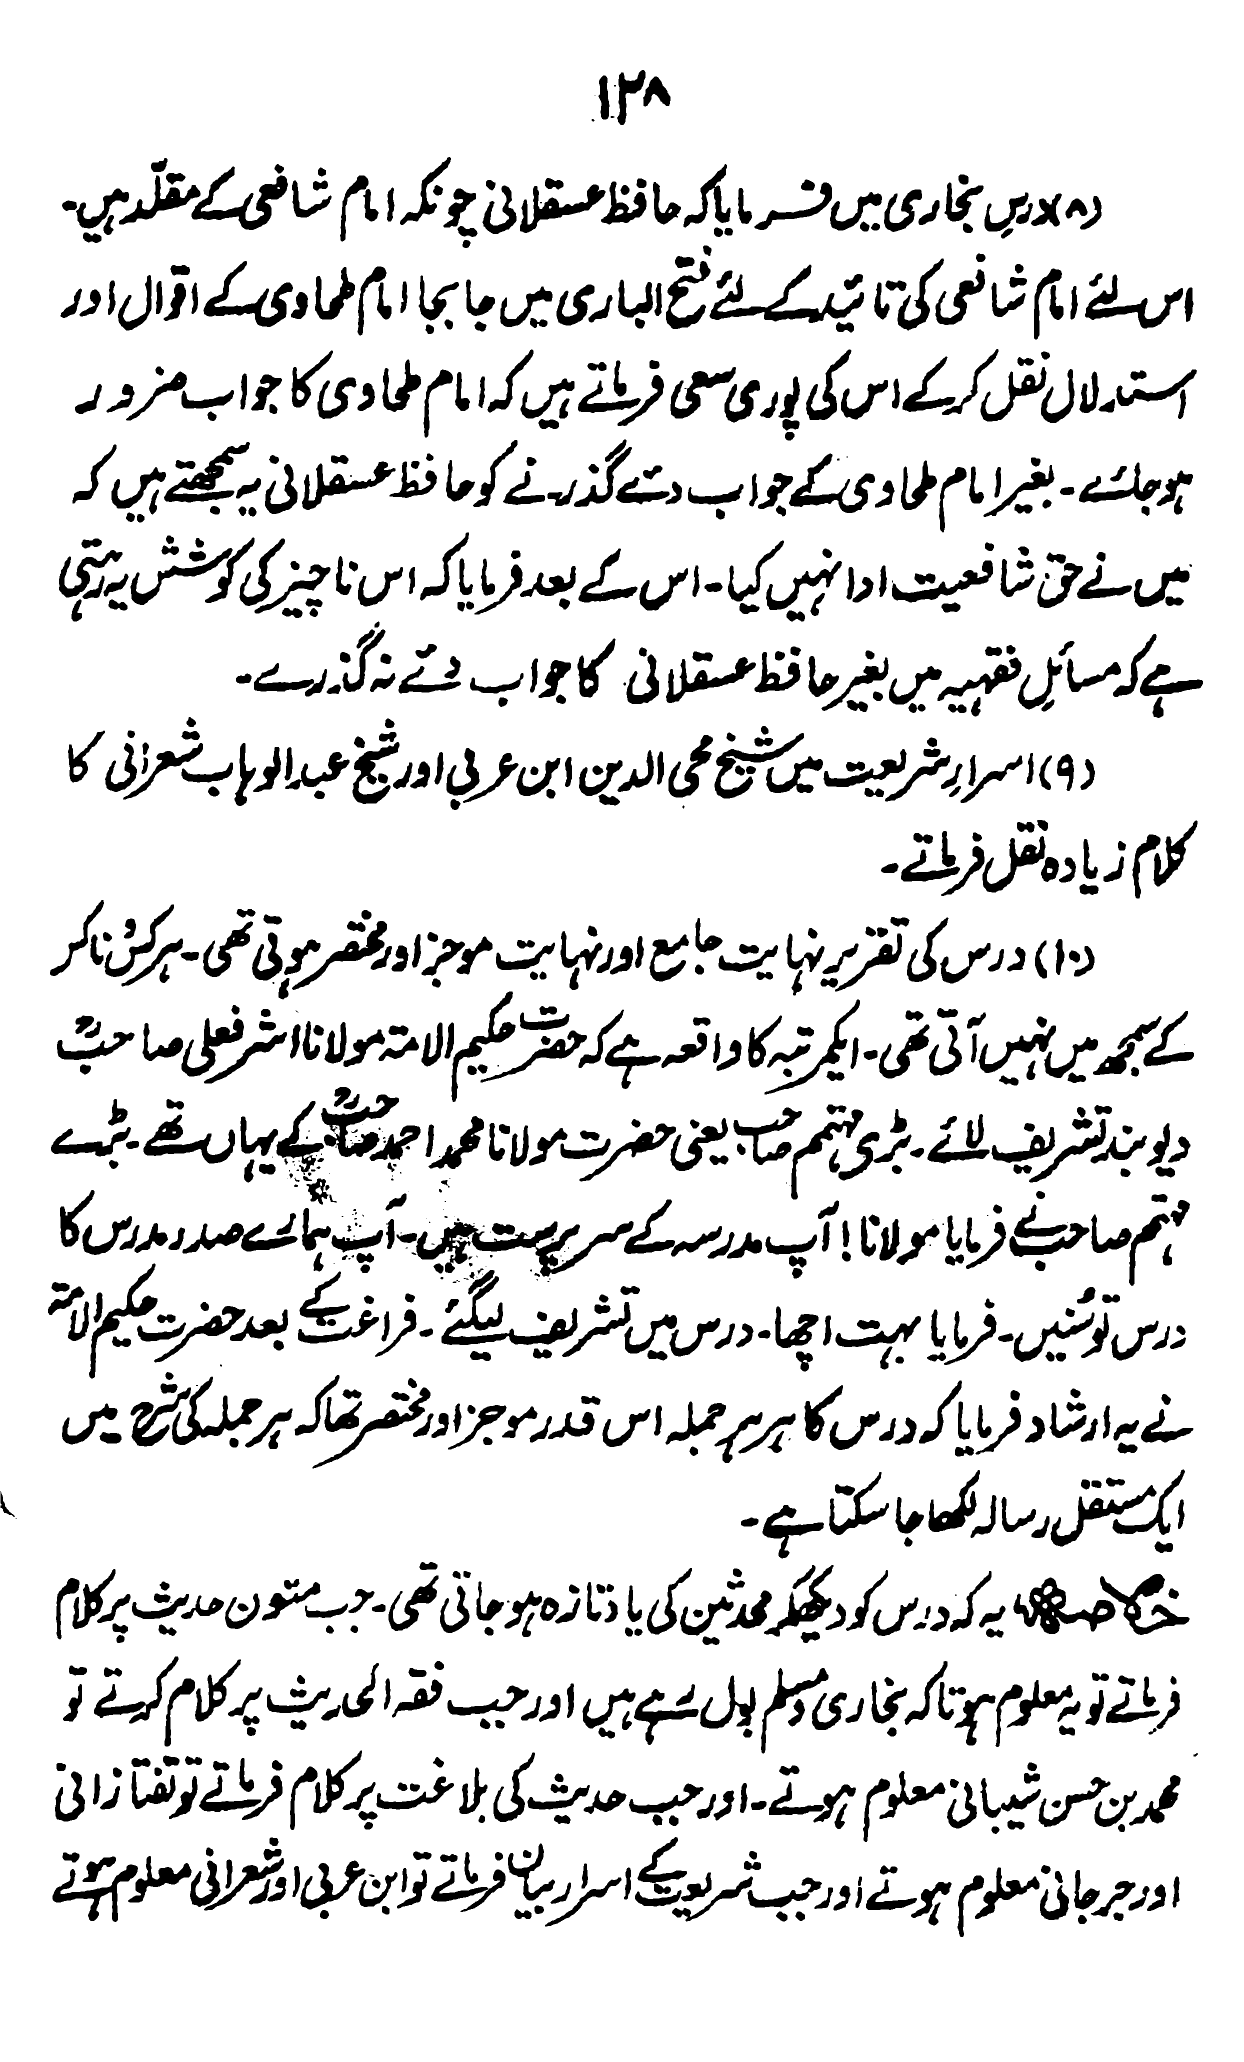 ۱۳۸
(۸) درسِ بخاری میں فرمایا کہ حافظ عسقلانی چونکہ امام شافعی کے مقلّد ہیں۔
اس لئے امام شافعی کی تائید کے لئے فتح الباری میں جابجا امام طحاوی کے اقوال اور
استدلال نقل کرکے اس کی پوری سعی فرماتے ہیں کہ امام طحاوی کا جواب ضرور
ہوجائے۔ بغیر امام طحاوی کے جواب دئے گذرنے کو حافظ عسقلانی یہ سمجھتے ہیں کہ
میں نے حق شافعیت ادا نہیں کیا۔ اس کے بعد فرمایا کہ اس ناچیز کی کوشش یہ رہتی
ہے کہ مسائلِ فقہیہ میں بغیر حافظ عسقلانی کا جواب دئے نہ گذرے۔
(۹) اسرارِ شریعت میں شیخ محی الدین ابن عربی اور شیخ عبدالوہاب شعرانی کا
کلام زیادہ نقل فرماتے۔
(۱۰) درس کی تقریر نہایت جامع اور نہایت موجز اور مختصر ہوتی تھی۔ ہر کس و ناکس
کے سمجھ میں نہیں آتی تھی۔ ایکمرتبہ کا واقعہ ہے کہ حضرت حکیم الامۃ مولانا اشرفعلی صاحبؒ
دیوبند تشریف لائے۔ بڑی مہتمم صاحب یعنی حضرت مولانا محمد احمد صاحبؒ کے یہاں تھے۔ بڑے
مہتمم صاحب نے فرمایا مولانا! آپ مدرسہ کے سرپرست ہیں۔ آپ ہمارے صدر مدرس کا
درس تو سُنیں۔ فرمایا بہت اچھا۔ درس میں تشریف لیگئے۔ فراغت کے بعد حضرت حکیم الامۃ
نے یہ ارشاد فرمایا کہ درس کا ہر ہر جملہ اس قدر موجز اور مختصر تھا کہ ہر جملہ کی شرح میں
ایک مستقل رسالہ لکھا جا سکتا ہے۔
خلاصہ یہ کہ درس کو دیکھکر محدثین کی یاد تازہ ہوجاتی تھی۔ جب متون حدیث پر کلام
فرماتے تو یہ معلوم ہوتا کہ بخاری و مسلم بول رہے ہیں اور جب فقہ الحدیث پر کلام کرتے تو
محمد بن حسن شیبانی معلوم ہوتے۔ اور جب حدیث کی بلاغت پر کلام فرماتے تو تفتازانی
اور جرجانی معلوم ہوتے اور جب شریعت کے اسرار بیان فرماتے تو ابن عربی اور شعرانی معلوم ہوتے